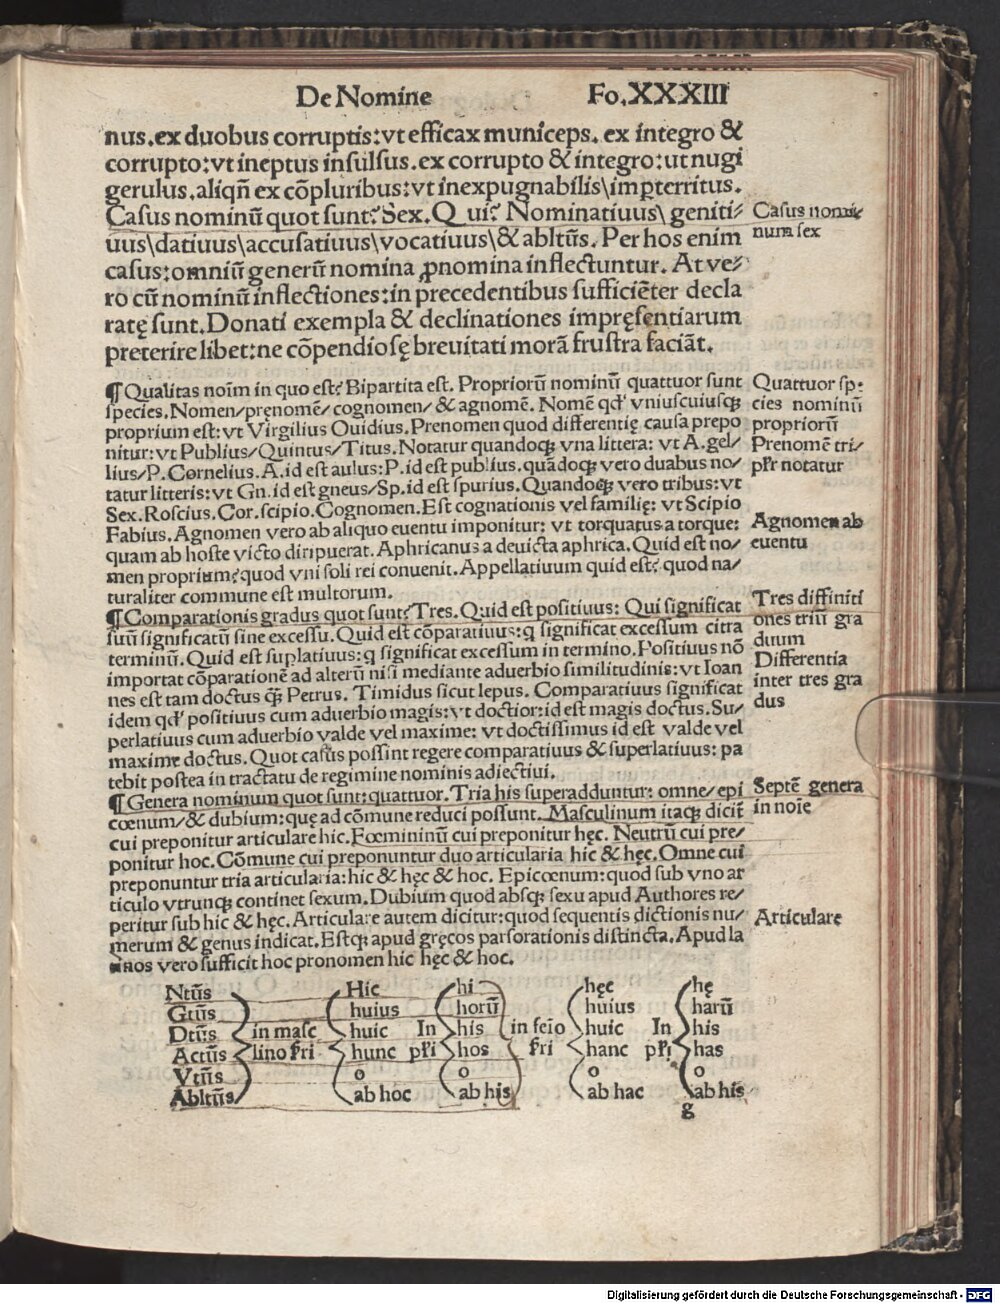 De Nomine Fo.XXXIII
nus.ex duobus corruptis:vt efficax municeps. ex integro &
corrupto:vt ineptus insulsus.ex corrupto & integro:ut nugi
gerulus.aliqñ ex cõpluribus:vt inexpugnabilis\imꝑterritus.
Casus nominũ quot sunt? Sex. Qui? Nominatiuus\ geniti⸗
uus\datiuus\accusatiuus\vocatiuus\& abltũs. Per hos enim
casus:omniũ generũ nomina ꝓnomina inflectuntur. At ve⸗
ro cũ nominũ inflectiones:in precedentibus sufficiẽter decla
ratę sunt.Donati exempla & declinationes impręsentiarum
preterire libet:ne cõpendiosę breuitati morã frustra faciãt.
Casus nomi⸗
num sex
¶ Qualitas noĩm in quo est? Bipartita est. Propriorũ nominũ quattuor sunt
species.Nomen/prenomẽ/cognomen/ & agnomẽ. Nomẽ qđ vniuscuiusqꝫ
proprium est:vt Virgilius Ouidius. Prenomen quod differentię causa prepo
nitur:vt Publius/Quintus/Titus. Notatur quandoqꝫ vna littera: vt A.gel/
lius/P.Cornelius.A.id est aulus:P.id est publius.quãdoqꝫ vero duabus no/
tatur litteris:vt Gn.id est gneus/Sp.id est spurius.Quandoqꝫ vero tribus:vt
Sex.Roscius.Cor.scipio.Cognomen.Est cognationis vel familię: vt Scipio
Fabius.Agnomen vero ab aliquo euentu imponitur: vt torquatus a torque:
quam ab hoste victo diripuerat.Aphricanus a deuicta aphrica.Quid est no/
men proprium?quod vni soli rei conuenit.Appellatiuum quid est? quod na/
turaliter commune est multorum.
Quattuor sp⸗
cies nominũ
propriorũ
Prenomẽ tri/
pl̃r notatur
Agnomen ab
euentu
¶ Comparationis gradus quot sunt? Tres. Quid est positiuus: Qui significat
suũ significatũ sine excessu.Quid est cõparatiuus:q significat excessum citra
terminũ.Quid est suplatiuus:q significat excessum in termino.Positiuus nõ
importat cõparationẽ ad alterũ nisi mediante aduerbio similitudinis:vt Ioan
nes est tam doctus q̃ꝫ Petrus. Timidus sicut lepus. Comparatiuus significat
idem qđ positiuus cum aduerbio magis:vt doctior:id est magis doctus.Su/
perlatiuus cum aduerbio valde vel maxime: vt doctissimus id est valde vel
maxime doctus.Quot casus possint regere comparatiuus & superlatiuus: pa
tebit postea in tractatu de regimine nominis adiectiui.
Tres diffiniti
ones triũ gra
duum
Differentia
inter tres gra
dus
¶ Genera nominum quot sunt:quattuor.Tria his superadduntur: omne/epi
cœnum/& dubium:quę ad cõmune reduci possunt. Masculinum itaqꝫ dicit̃
cui preponitur articulare hic.Fœmininũ cui preponitur hęc. Neutrũ cui pre/
ponitur hoc.Cõmune cui preponuntur duo articularia hic & hęc.Omne cui
preponuntur tria articularia:hic & hęc & hoc. Epicœnum:quod sub vno ar
ticulo vtrunqꝫ continet sexum.Dubium quod absqꝫ sexu apud Authores re/
peritur sub hic & hęc.Articulare autem dicitur:quod sequentis dictionis nu/
merum & genus indicat.Estqꝫ apud gręcos pars orationis distincta.Apud la
tinos vero sufficit hoc pronomen hic hęc & hoc.
Septẽ genera
in noĩe
Articulare
Ntũs Hic hi hęc hę
Gtũs huius horũ huius harũ
Dtũs in masc huic In his in feĩo huic In his
Actũs lino sr̃i hunc pl̃i hos sr̃i hanc pl̃i has
Vtũs o o o o
Abltũs ab hoc ab his ab hac ab his
g
Digitalisierung gefördert durch die Deutsche Forschungsgemeinschaft - DFG